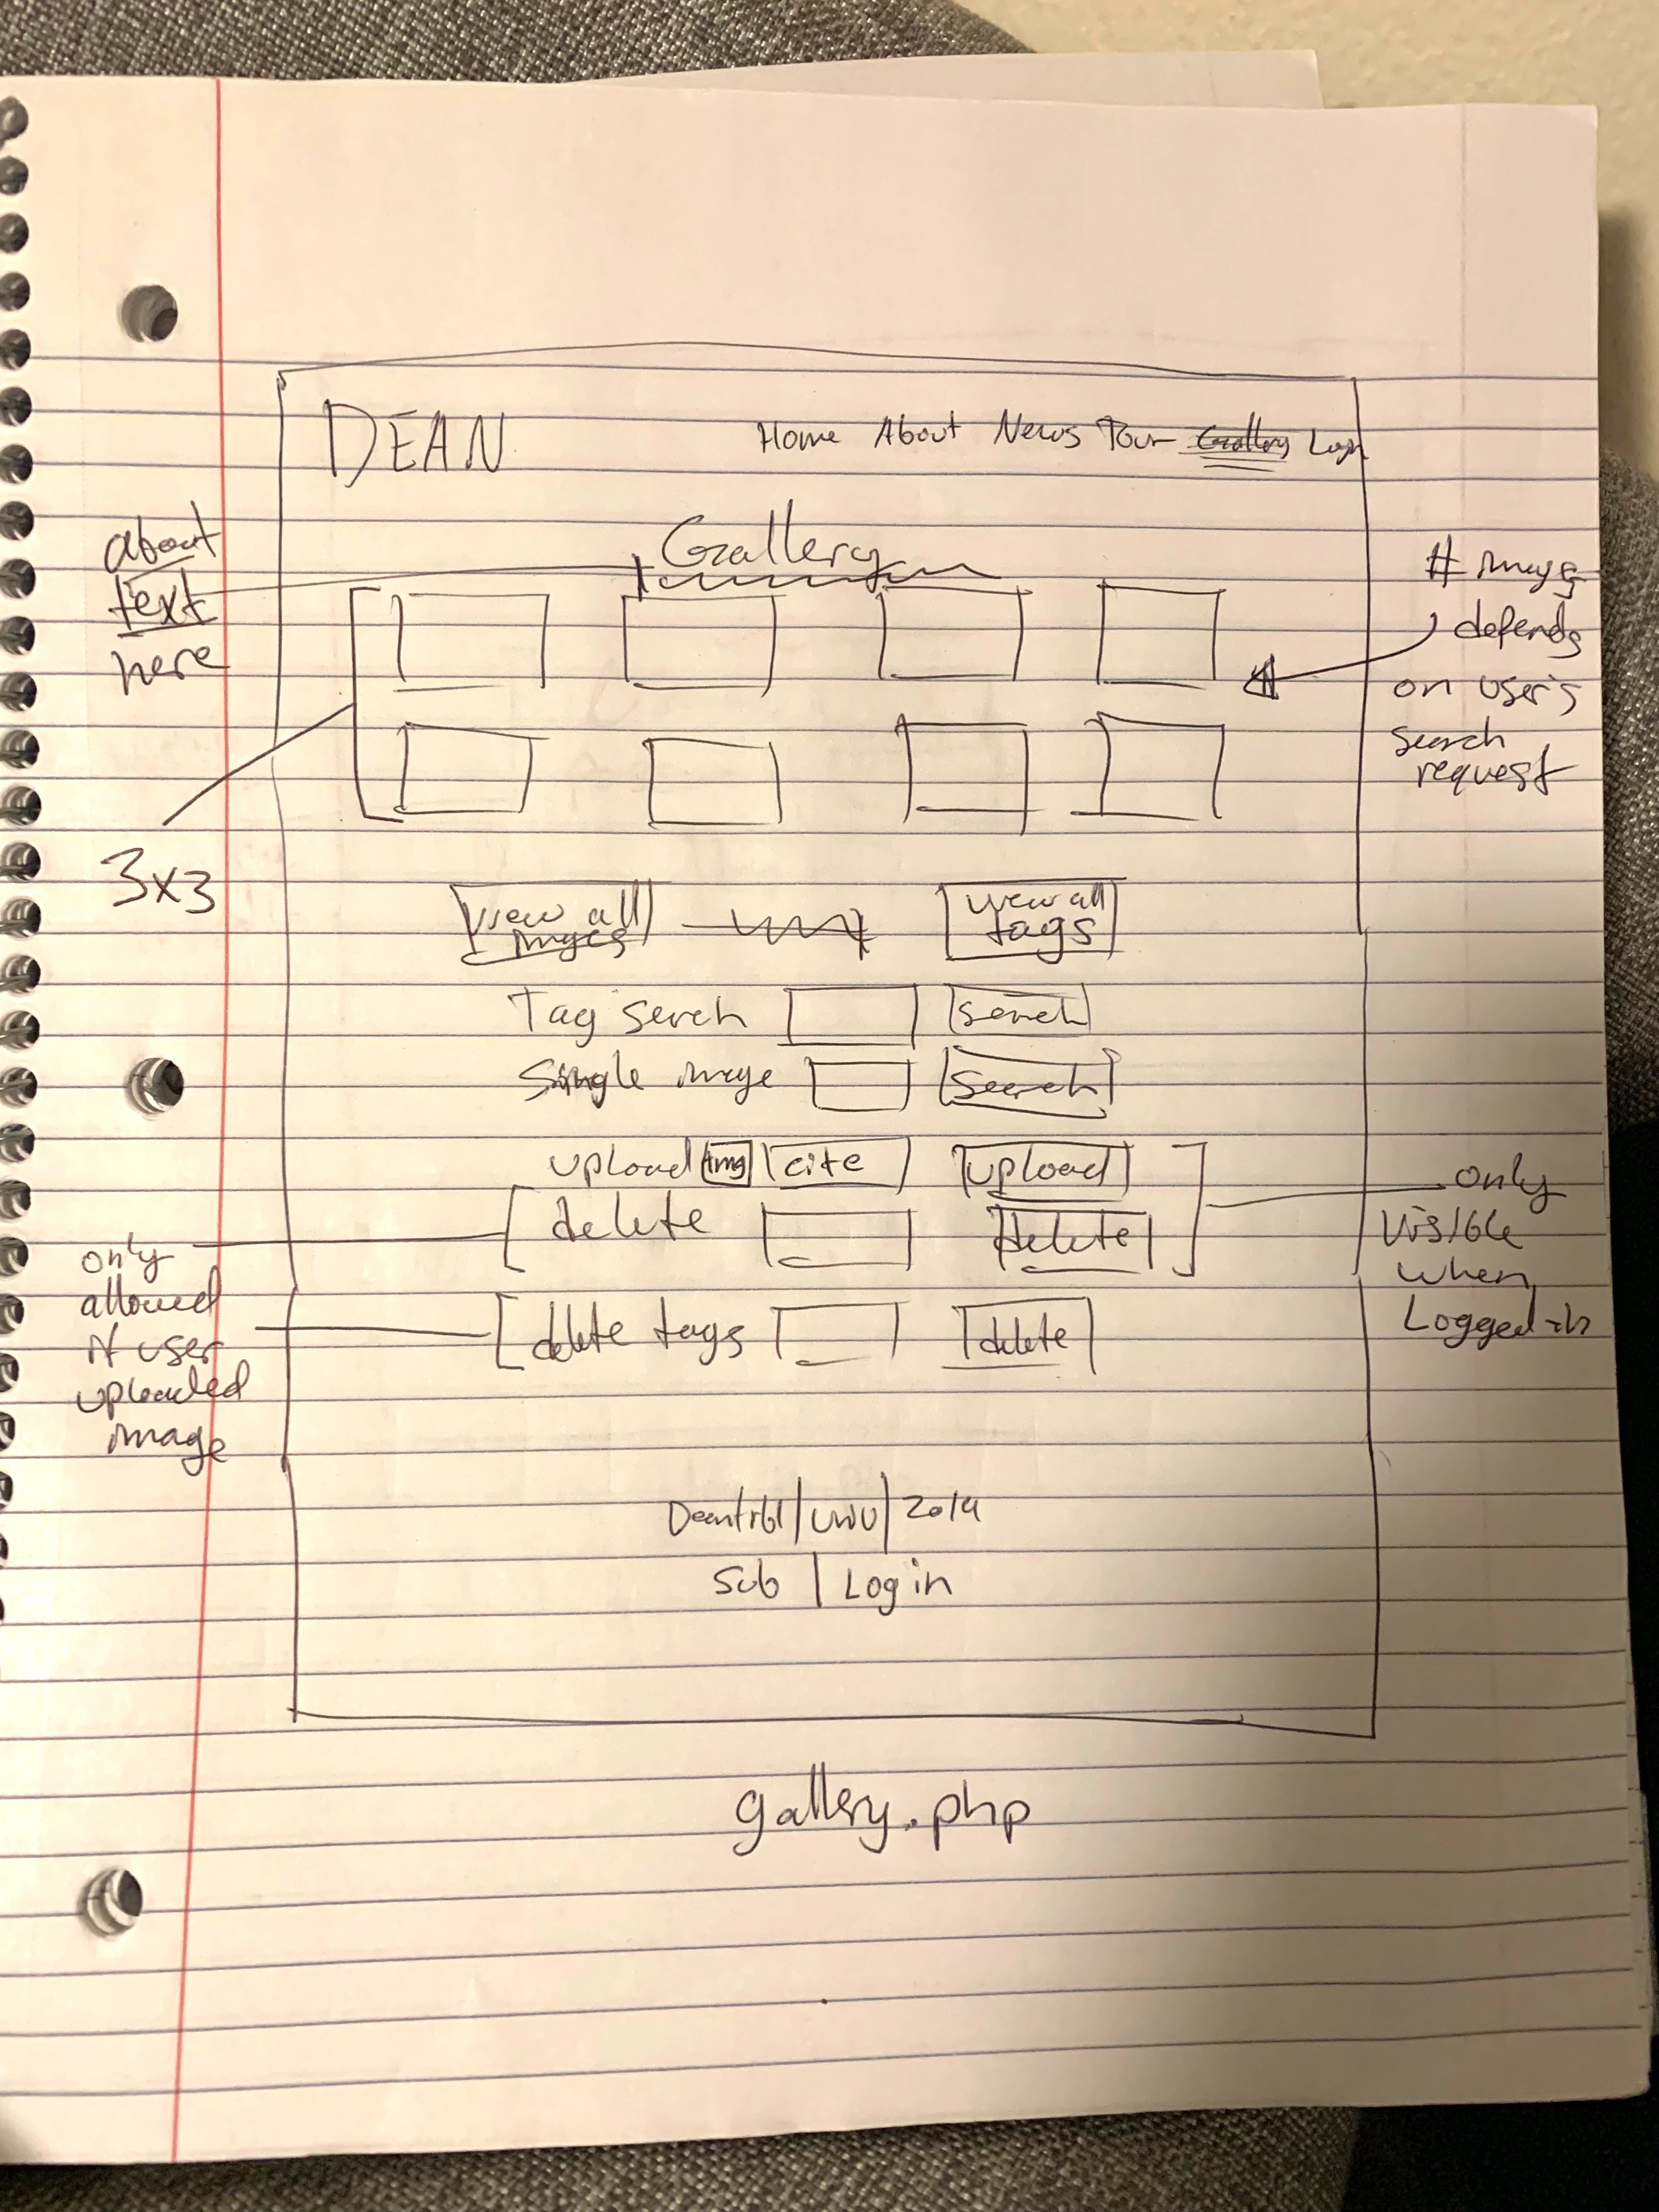 DEAN
Home About News Tour Gallery Login
Gallery
about
text
here
# images
depends
on user's
search
request
3x3
view all
images
view all
tags
Tag serch
serch
Single image
search
upload img cite upload
delete
delete
delete tags
delete
only
visible
when
Logged-in
only
allowed
if user
uploaded
image
| | 2019
Sub | Log in
gallery.php